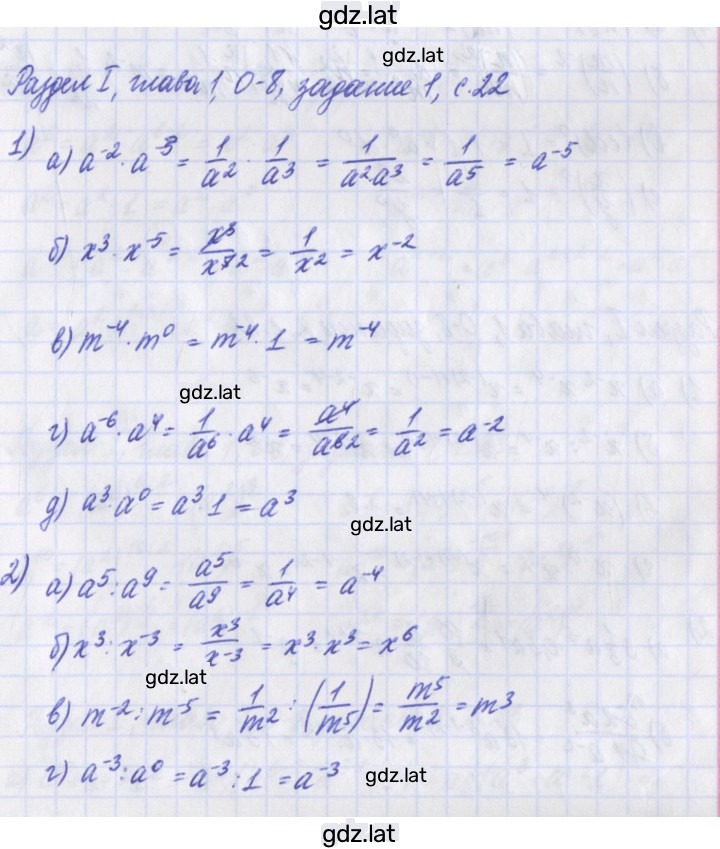 gdz.lat
gdz.lat
Раздел I, глава 1, О-8, задание 1, с.22
1) а) a⁻²·a⁻³ = 1/a² · 1/a³ = 1/a²a³ = 1/a⁵ = a⁻⁵
б) x³·x⁻⁵ = x³/x⁵2 = 1/x² = x⁻²
в) m⁻⁴·m⁰ = m⁻⁴·1 = m⁻⁴
gdz.lat
г) a⁻⁶·a⁴ = 1/a⁶ · a⁴ = a⁴/a⁶2 = 1/a² = a⁻²
д) a³·a⁰ = a³·1 = a³
gdz.lat
2) а) a⁵:a⁹ = a⁵/a⁹ = 1/a⁴ = a⁻⁴
б) x³· x⁻³ = x³/x⁻³ = x³·x³ = x⁶
gdz.lat
в) m⁻²:m⁻⁵ = 1/m² : (1/m⁵) = m⁵/m² = m³
г) a⁻³:a⁰ = a⁻³:1 = a⁻³
gdz.lat
gdz.lat